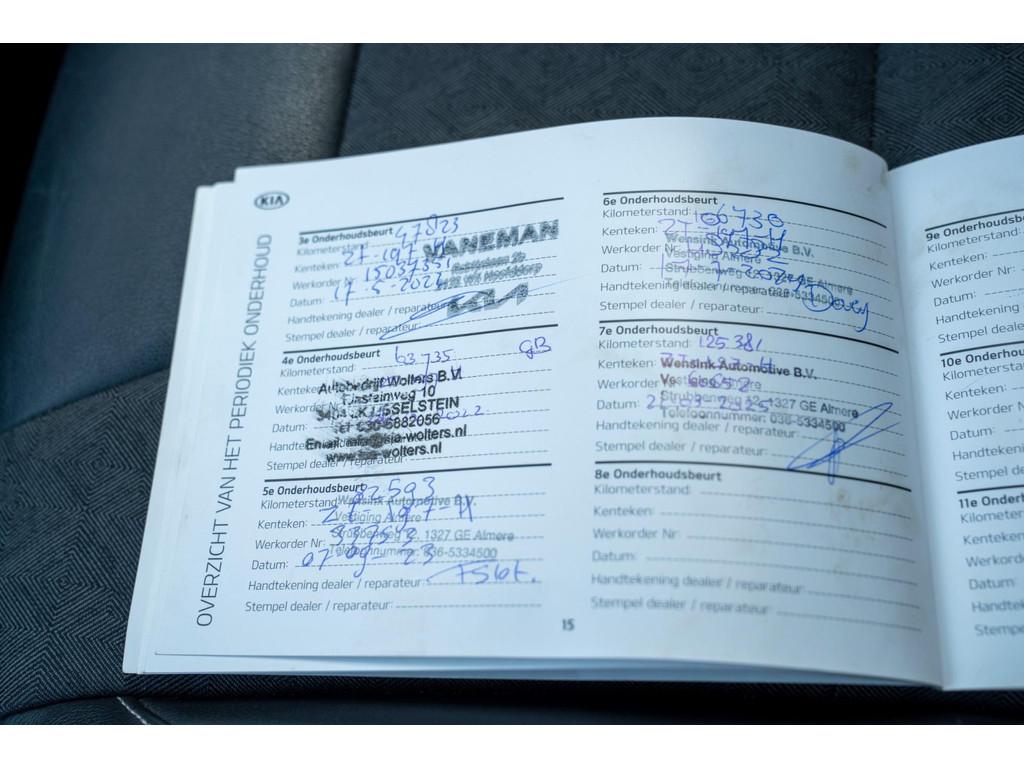 KIA
OVERZICHT VAN HET PERIODIEK ONDERHOUD
3e Onderhoudsbeurt
Kilometerstand 47823
Kenteken:
Werkorder Nr:
Datum: 17-5-202
Handtekening dealer / reparateur:
Stempel dealer / reparateur:
VANEMAN
KIA
4e Onderhoudsbeurt
Kilometerstand: 63735 GB
Kenteken
Werkorder
Datum: 2022
Handtekening
Stempel dealer / reparateur:
Autobedrijf Wolters B.V.
Einsteinweg 10
IJSSELSTEIN
Tel 030-6882056
wolters.nl
www. wolters.nl
5e Onderhoudsbeurt
Kilometerstand 82593
Kenteken: 27-197-H
Werkorder Nr:
Datum: 07 09 23
Handtekening dealer / reparateur:
Stempel dealer / reparateur:
Wensink Automotive B.V.
Vestiging Almere
Strubbenweg 12, 1327 GE Almere
Telefoonnummer: 036-5334500
15
6e Onderhoudsbeurt
Kilometerstand: 106730
Kenteken:
Werkorder Nr:
Datum:
Handtekening dealer / reparateur:
Stempel dealer / reparateur:
Wensink Automotive B.V.
Vestiging Almere
Strubbenweg 12, 1327 GE Almere
Telefoonnummer: 036-5334500
7e Onderhoudsbeurt
Kilometerstand: 125381
Kenteken:
Werkorder Nr: 60652
Datum: 2025
Handtekening dealer / reparateur:
Stempel dealer / reparateur:
Wensink Automotive B.V.
Vestiging Almere
Strubbenweg 12, 1327 GE Almere
Telefoonnummer: 036-5334500
8e Onderhoudsbeurt
Kilometerstand:
Kenteken:
Werkorder Nr:
Datum:
Handtekening dealer / reparateur:
Stempel dealer / reparateur:
9e Onderhoudsb
Kilometerstand:
Kenteken:
Werkorder Nr:
Datum:
Handteken
Stempel dea
10e Onderhou
Kilometerstan
Kenteken:
Werkorder N
Datum:
Handteken
Stempel d
11e Onder
Kilometer
Kenteken
Werkord
Datum:
Handtek
Stempe